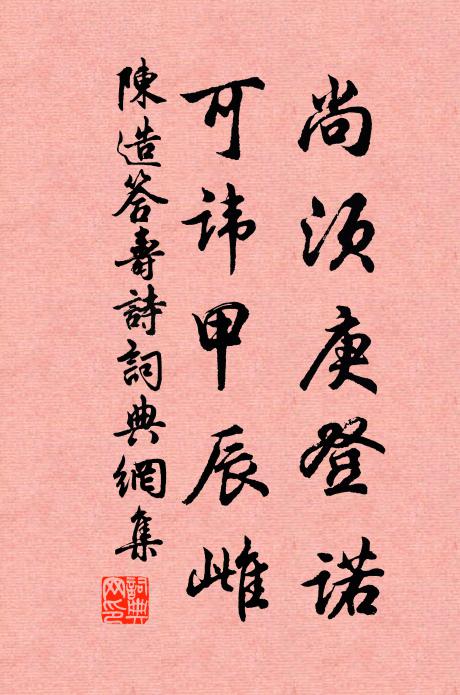 尚須庚登諾
可諱甲辰雌
陳造答壽詩詞典網集
詞典網印